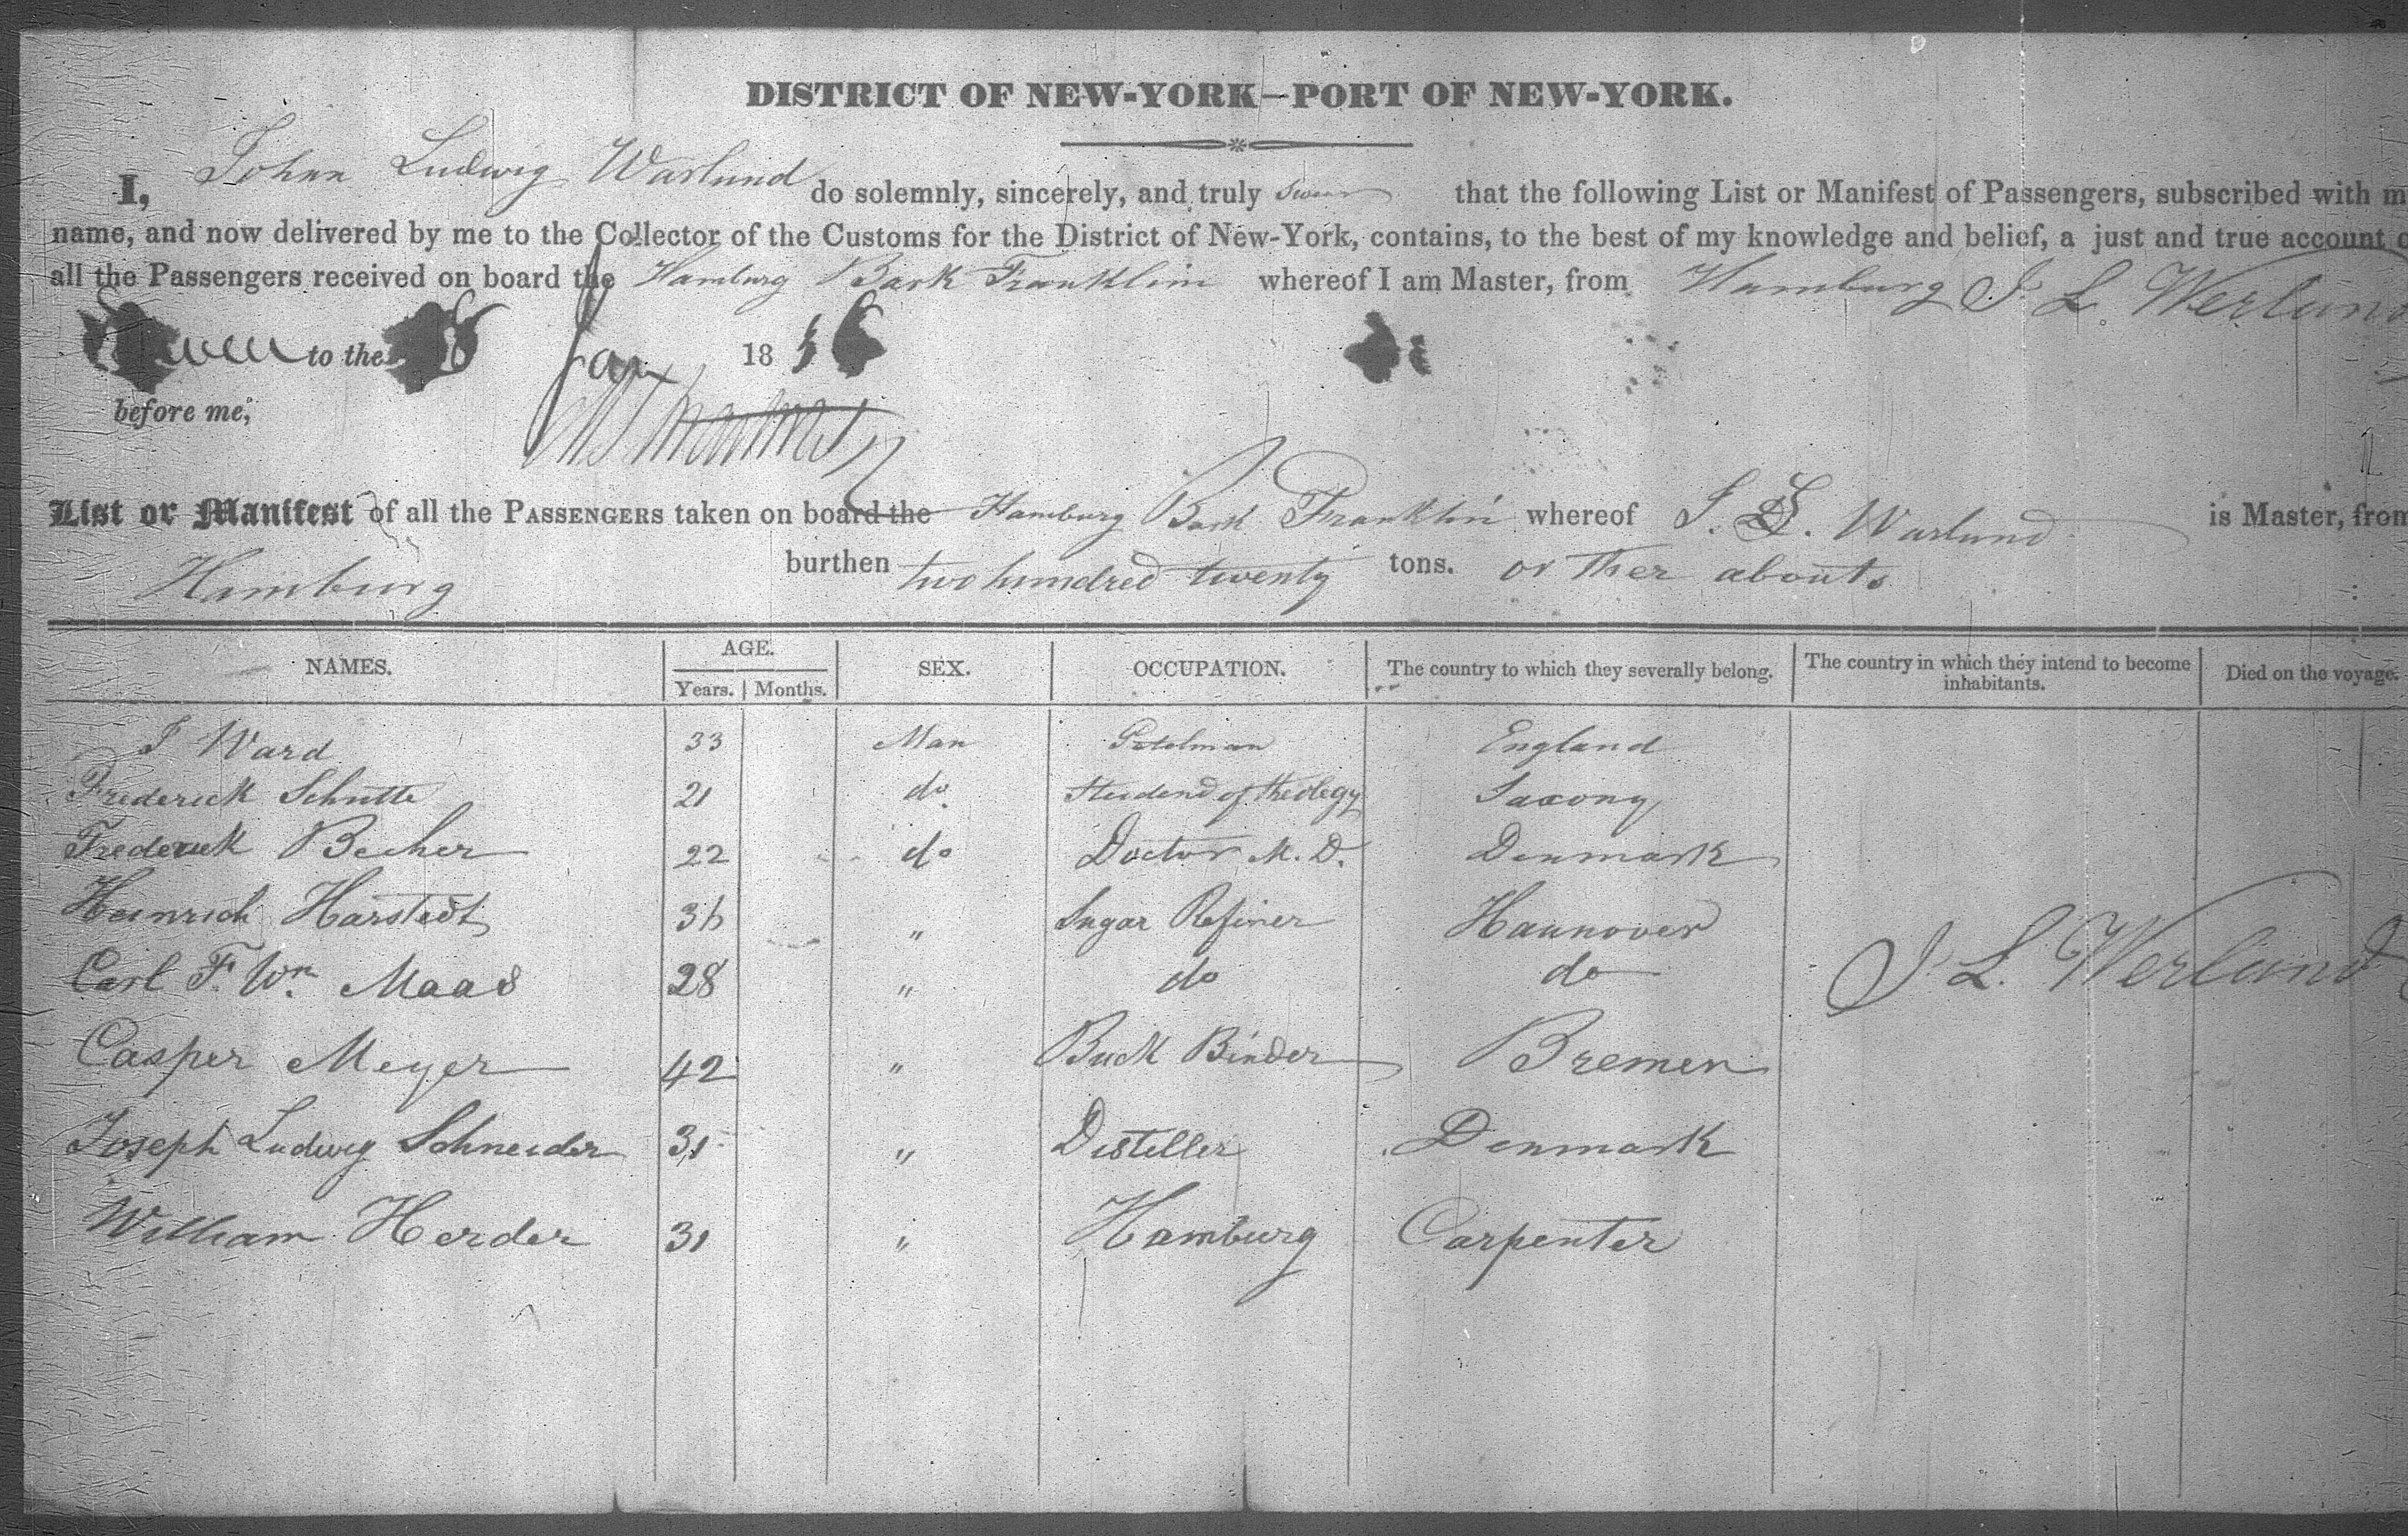 DISTRICT OF NEW-YORK—PORT OF NEW-YORK.
I, Johan Ludwig Warlund do solemnly, sincerely, and truly swear that the following List or Manifest of Passengers, subscribed with m
name, and now delivered by me to the Collector of the Customs for the District of New-York, contains, to the best of my knowledge and belief, a just and true account
all the Passengers received on board the Hamburg Bark Franklin whereof I am Master, from Hamburg J L Werlund
to the Jan 18
before me,
List or Manifest of all the PASSENGERS taken on board the Hamburg Bark Franklin whereof J. L. Warlund is Master, from
Hamburg burthen two hundred twenty tons. or ther abouts
NAMES. AGE. SEX. OCCUPATION. The country to which they severally belong. The country in which they intend to become inhabitants. Died on the voyage.
Years. Months.
J Ward 33 Man England
Frederick Schutte 21 do Studend of theology Saxony
Frederick Becher 22 do Doctor M. D. Denmark
Heinrich Harstedt 36 " Sugar Refiner Hannover
Carl F. Wm. Maas 28 " do do
J L. Werlund
Casper Meyer 42 " Buck Binder Bremen
Joseph Ludwig Schneider 31 " Distiller Denmark
William Herder 31 " Hamburg Carpenter